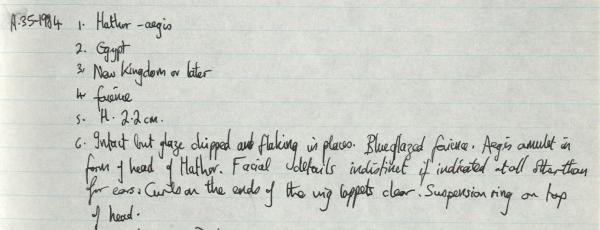 A.35-1984 1. Hathor-aegis
2. Egypt
3. New Kingdom or later
4. faience
5. H. 2.2 cm.
6. Intact but glaze chipped and flaking in places. Blue glazed faience. Aegis amulet in
form of head of Hathor. Facial details indistinct if indicated at all other than
for ears. Curls on the ends of the wig lappets clear. Suspension ring on top
of head.